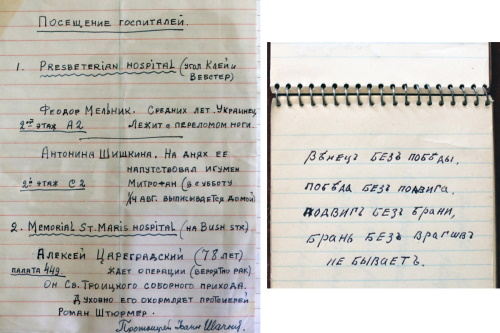 Посещение госпиталей.
1. Presbeterian Hospital (угол Клей и
Вебстер)
Феодор Мельник. Средних лет. Украинец
2ой этаж А2 Лежит с переломом ноги.
Антонина Шишкина. На днях ее
напутствовал игумен
2й этаж С2 Митрофан (в субботу
14 авг. выписывается домой)
2. Memorial St. Maris Hospital (на Bush str)
Алексей Цареградский (78 лет)
палата 449. Ждет операции (вероятно рак)
Он Св. Троицкого соборного прихода.
Духовно его окормляет протоиерей
Роман Штюрмер.
Протоиерей Иоанн
Вѣнецъ безъ побѣды,
побѣда безъ подвига,
подвигъ безъ брани,
брань безъ враговъ
не бываетъ.